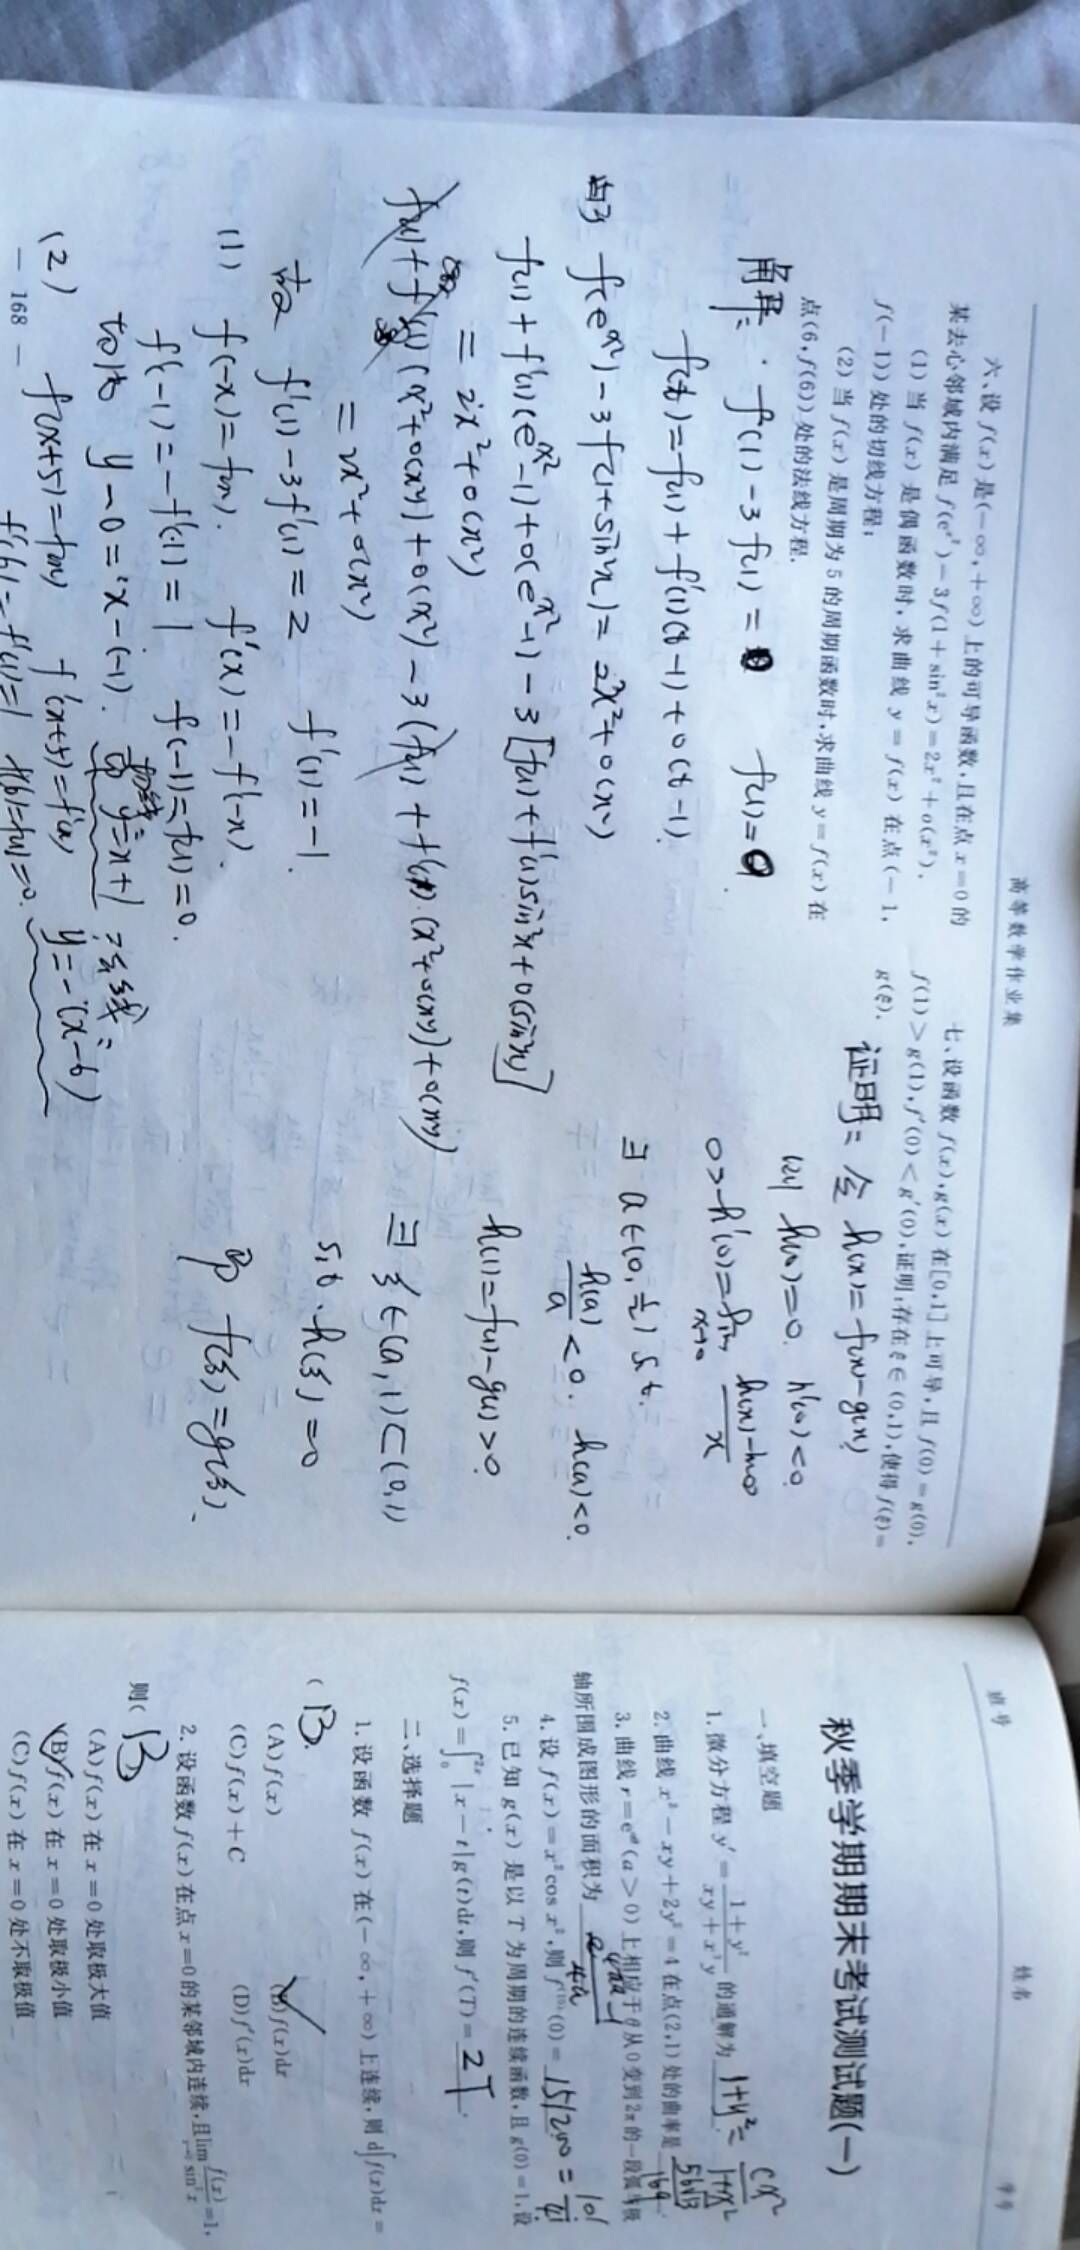 高等数学作业集
六、设 f(x) 是(-∞,+∞)上的可导函数,且在点 x=0 的
某去心邻域内满足 f(e^{x²})-3f(1+sin²x)=2x²+o(x²).
(1)当 f(x) 是偶函数时,求曲线 y=f(x) 在点(-1,
f(-1))处的切线方程;
(2)当 f(x) 是周期为 5 的周期函数时,求曲线 y=f(x) 在
点(6,f(6))处的法线方程.
解: f(1)-3f(1)=0 f(1)=0.
f(t)=f(1)+f'(1)(t-1)+o(t-1).
由于 f(e^{x²})-3f(1+sin²x)=2x²+o(x²)
f(1)+f'(1)(e^{x²}-1)+o(e^{x²}-1)-3[f(1)+f'(1)sin²x+o(sin²x)]
=2x²+o(x²)
f(1)+f'(1)(x²+o(x²))+o(x²)-3(f(1)+f'(1)·(x²+o(x²))+o(x²))
=2x²+o(x²)
故 f'(1)-3f'(1)=2 f'(1)=-1.
(1) f(-x)=f(x). f'(x)=-f'(-x)
f'(-1)=-f'(1)=1 f(-1)=f(1)=0.
切线 y-0=x-(-1). 切线: y=x+1
(2) f(x+5)=f(x) f'(x+5)=f'(x) 法线: y=-(x-6)
f'(6)=f'(1)= f(6)=f(1)=0.
— 168 —
七、设函数 f(x),g(x) 在[0,1]上可导,且 f(0)=g(0),
f(1)>g(1),f'(0)<g'(0),证明,存在 ξ∈(0,1),使得 f(ξ)=
g(ξ).
证明: 令 h(x)=f(x)-g(x)
则 h(0)=0. h'(0)<0.
0>h'(0)=lim_{x→0} (h(x)-h(0))/x
∃ a∈(0,1/2) s.t.
h(a)/a<0. h(a)<0.
h(1)=f(1)-g(1)>0.
∃ ξ∈(a,1)⊂(0,1)
s.t. h(ξ)=0
即 f(ξ)=g(ξ).
班号 姓名 学号
秋季学期期末考试测试题(一)
一、填空题
1. 微分方程 y'=(1+y²)/(xy+x³y) 的通解为 1+y²=cx²/(1+x²)
2. 曲线 x²-xy+2y²=4 在点(2,1)处的曲率是
3. 曲线 r=e^{aθ}(a>0)上相应于 θ 从 0 变到 2π 的一段弧与极
轴所围成图形的面积为
4. 设 f(x)=x²cos x²,则 f^{(10)}(0)= 151200=10!/4!
5. 已知 g(x) 是以 T 为周期的连续函数,且 g(0)=1,设
f(x)=∫₀^{2x}|x-t|g(t)dt,则 f'(T)= 2T.
二、选择题
1. 设函数 f(x) 在(-∞,+∞)上连续,则 d∫f(x)dx=
( B.
(A)f(x) (B)f(x)dx
(C)f(x)+C (D)f'(x)dx
2. 设函数 f(x) 在点 x=0 的某邻域内连续,且 lim_{x→0} f(x)/sin²x=1,
则( B)
(A)f(x) 在 x=0 处取极大值
(B)f(x) 在 x=0 处取极小值
(C)f(x) 在 x=0 处不取极值